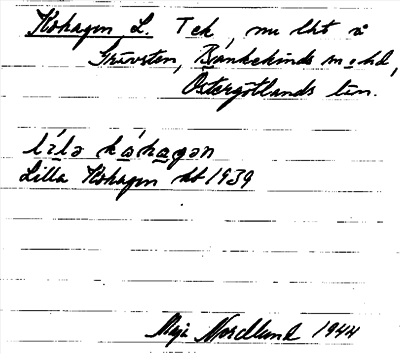 Kohagen, L. Tck, nu lht å
Grävsten, Bankekinds sn o hd,
Östergötlands län.
lìlə kóhagən
Lilla Kohagen kb 1939
Maja Nordlund 1944